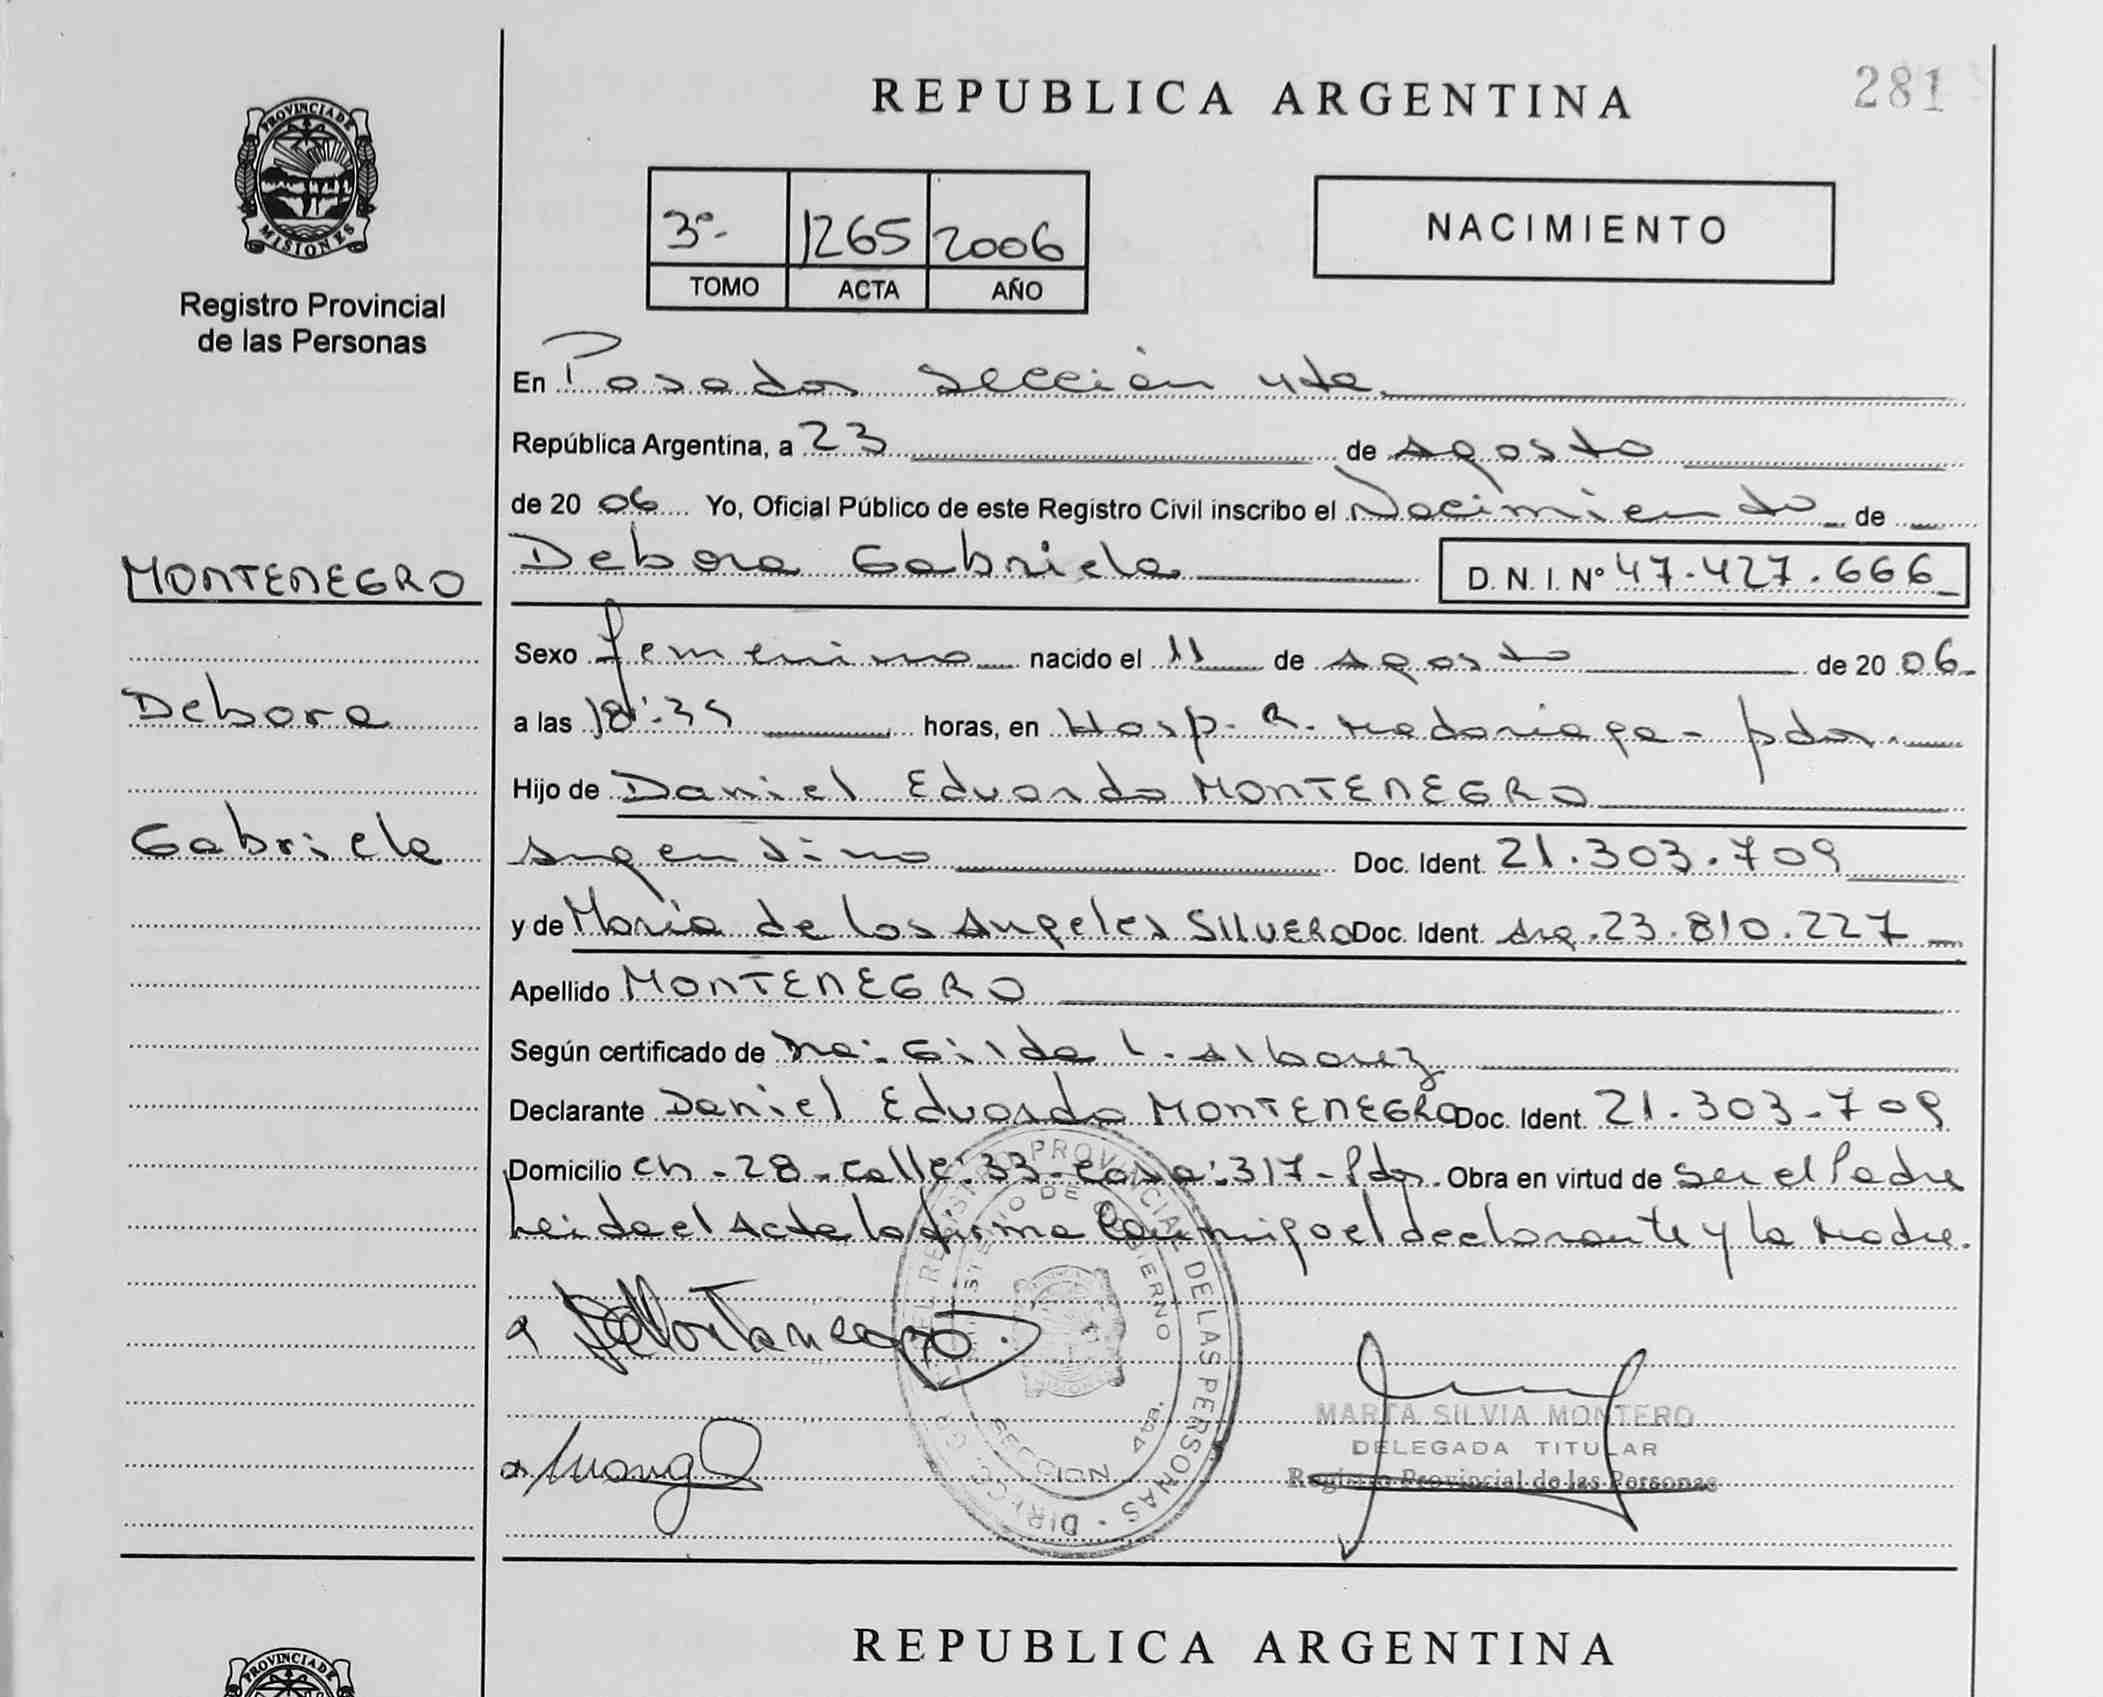 REPUBLICA ARGENTINA
281
PROVINCIA DE
MISIONES
Registro Provincial
de las Personas
3º- 1265 2006
TOMO ACTA AÑO
NACIMIENTO
En Posadas Sección 4ta
República Argentina, a 23 de Agosto
de 20 06 Yo, Oficial Público de este Registro Civil inscribo el Nacimiento de
MONTENEGRO
Debora Gabriela D. N. I. Nº 47.427.666
Sexo femenino nacido el 11 de Agosto de 20 06.
Debora
a las 18:35 horas, en Hosp. R. Madariaga - pdas.
Hijo de Daniel Eduardo MONTENEGRO
Gabriela
Argentino Doc. Ident. 21.303.709
y de María de los Angeles SILVERO Doc. Ident. Arg. 23.810.227
Apellido MONTENEGRO
Según certificado de Gilda L. Albarez
Declarante Daniel Eduardo MONTENEGRO Doc. Ident. 21.303.709
Domicilio Ch - 28 - calle: 33 - casa: 317 - Pdas. Obra en virtud de ser el Padre
Leida el Acta la firma conmigo el declarante y la madre.
DEL REGISTRO PROVINCIAL DE LAS PERSONAS
MINISTERIO DE GOBIERNO
SECCION 4ta.
MARTA SILVIA MONTERO
DELEGADA TITULAR
Registro Provincial de las Personas
REPUBLICA ARGENTINA
PROVINCIA DE